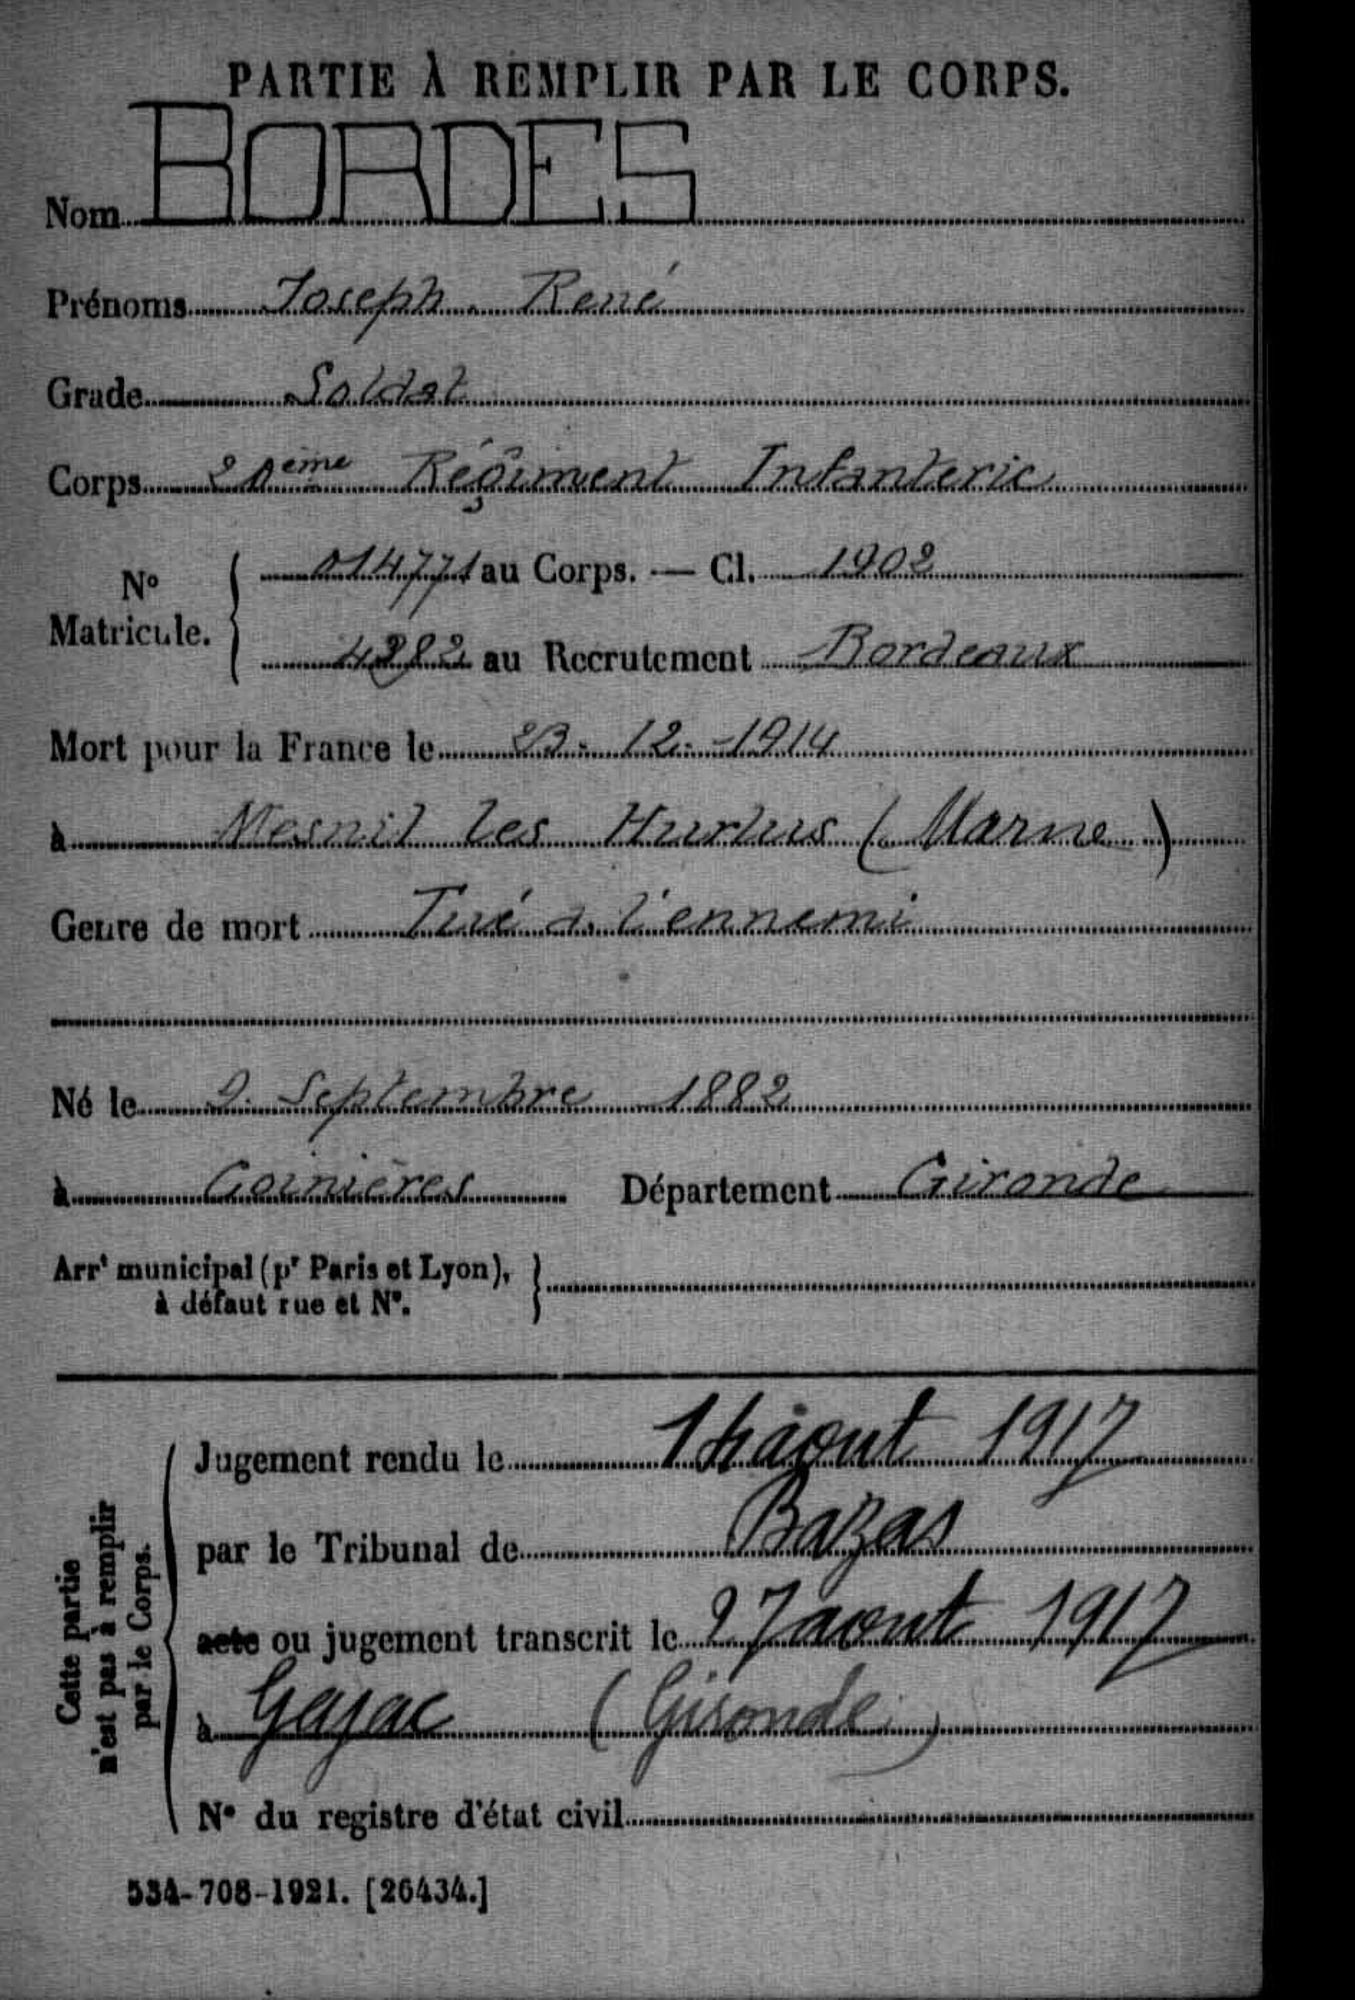 PARTIE À REMPLIR PAR LE CORPS.
Nom BORDES
Prénoms Joseph René
Grade Soldat
Corps 20ème Régiment Infanterie
N° Matricule. 014771 au Corps. — Cl. 1902
4282 au Recrutement Bordeaux
Mort pour la France le 23-12-1914
à Mesnil les Hurlus (Marne)
Genre de mort Tué à l'ennemi
Né le 9 Septembre 1882
à Département Gironde
Arrt municipal (pr Paris et Lyon),
à défaut rue et N°.
Cette partie n'est pas à remplir par le Corps.
Jugement rendu le 14 aout 1917
par le Tribunal de Bazas
acte ou jugement transcrit le 27 aout 1917
à Gajac (Gironde)
N° du registre d'état civil
534-708-1921. [26434.]